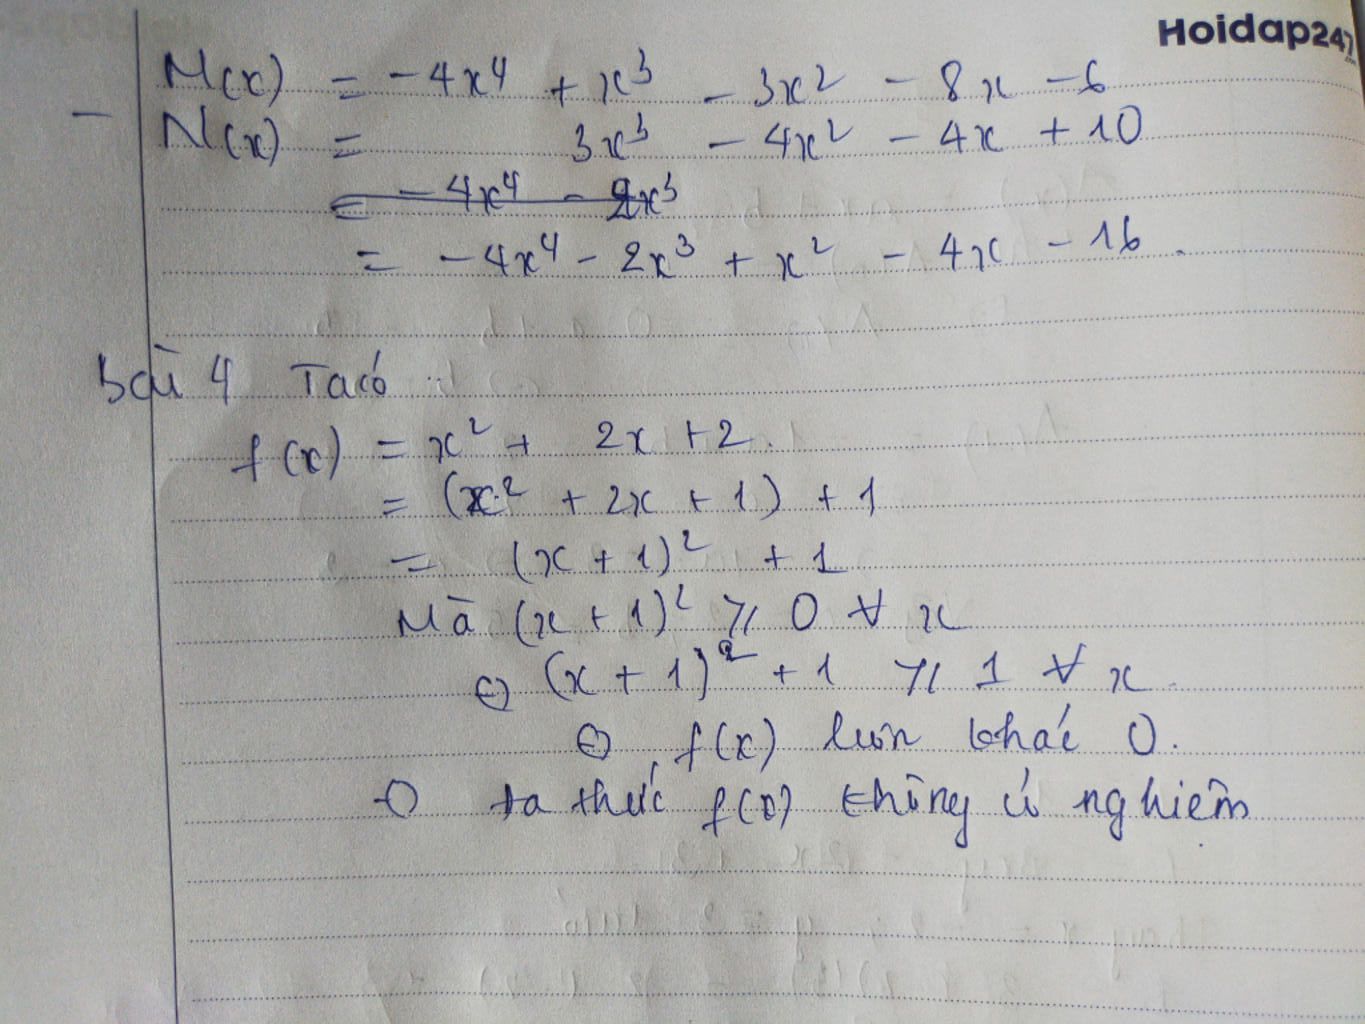 Hoidap247
M(x) = -4x⁴ + x³ - 3x² - 8x - 6
- N(x) = 3x³ - 4x² - 4x + 10
= -4x⁴ - 2x³
= -4x⁴ - 2x³ + x² - 4x - 16.
Bài 4 Ta có:
f(x) = x² + 2x + 2.
= (x² + 2x + 1) + 1
= (x + 1)² + 1
Mà (x + 1)² ≥ 0 ∀ x
⇔ (x + 1)² + 1 ≥ 1 ∀ x.
⇔ f(x) luôn khác 0.
thức f(x) không có nghiệm